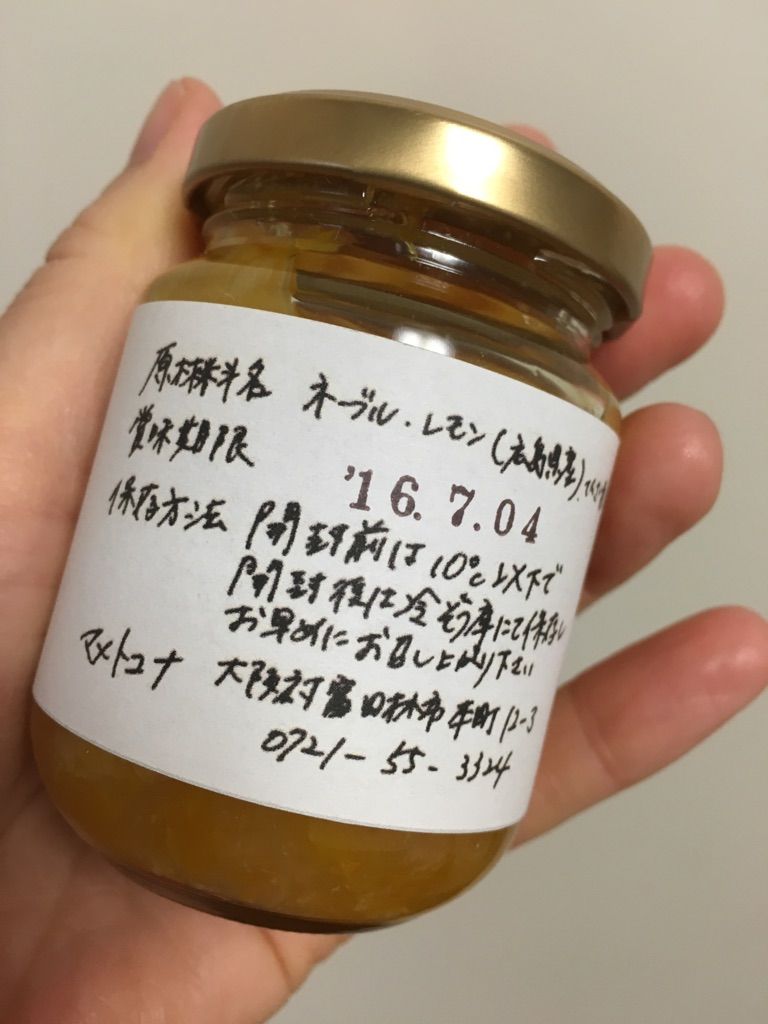 原材料名 ネーブル・レモン(広島県産)、てんさい
賞味期限 '16.7.04
保存方法 開封前は10℃以下で
開封後は冷ぞう庫にて保存し
お早めにお召し上がり下さい
マメトコナ 大阪府富田林市本町12-3
0721-55-3324